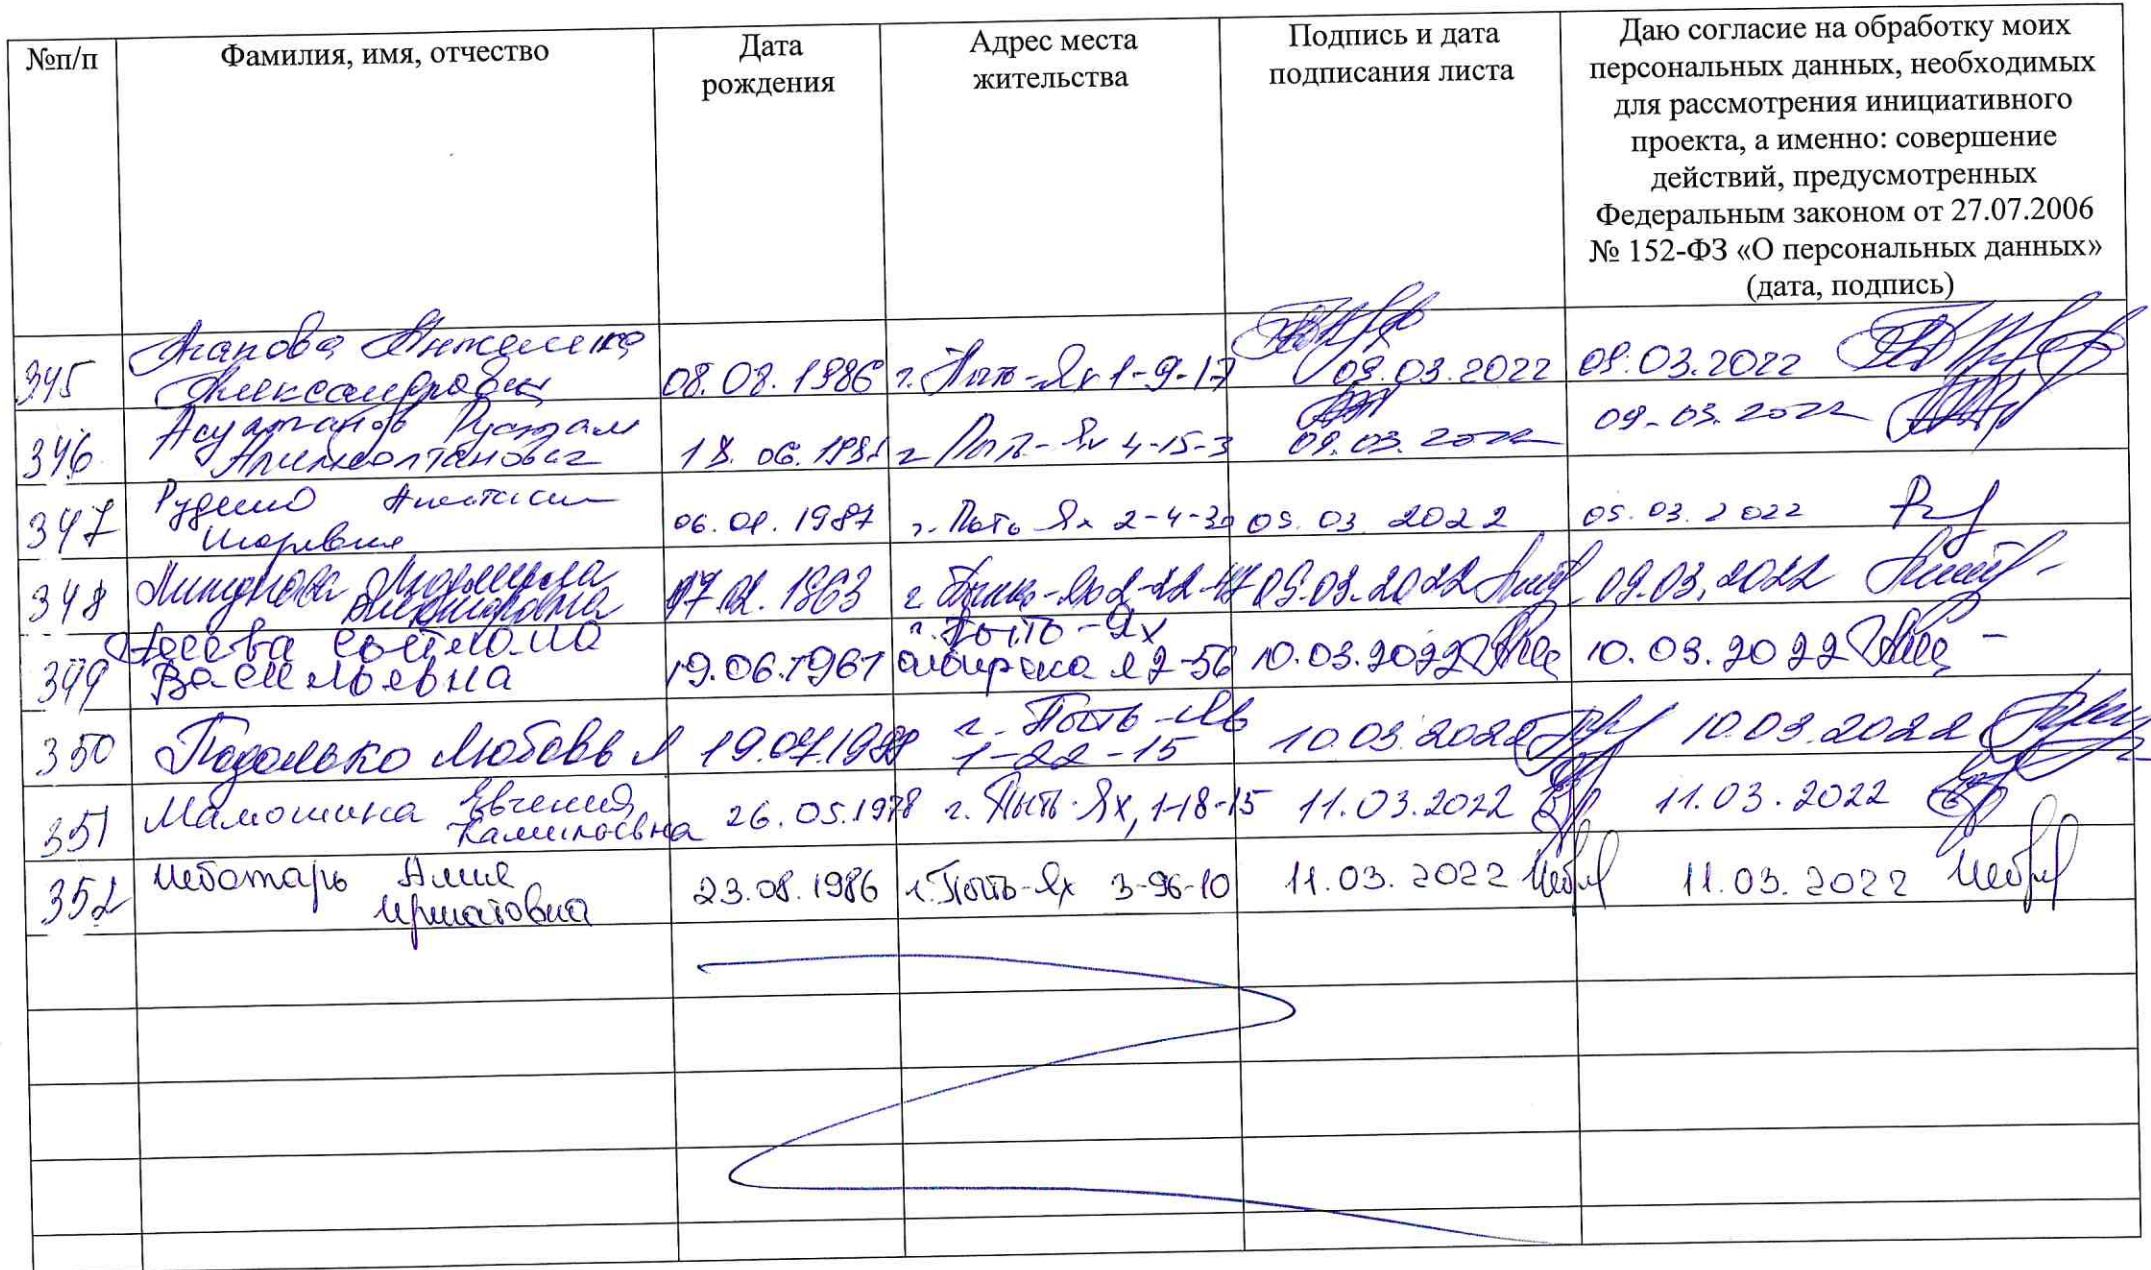 №п/п
Фамилия, имя, отчество
Дата
рождения
Адрес места
жительства
Подпись и дата
подписания листа
Даю согласие на обработку моих
персональных данных, необходимых
для рассмотрения инициативного
проекта, а именно: совершение
действий, предусмотренных
Федеральным законом от 27.07.2006
№ 152-ФЗ «О персональных данных»
(дата, подпись)
345
Анжелика
Александровна
08.08.1986
г. Пыть-Ях 1-9-17
09.03.2022
09.03.2022
346
Рустам
18.06.1981
г Пыть-Ях 4-15-3
09.03.2022
09.03.2022
347
Руденко Анастасия
Игоревна
1987
г. Пыть-Ях 2-4-30
03 2022
03.2022
348
Людмила
1963
г. Пыть-Ях 2-22-
09.03.2022
09.03.2022
349
Светлана
Васильевна
19.06.1961
г. Пыть-Ях
10.03.2022
10.03.2022
350
Подолько Любовь
г. Пыть-Ях
1-22-15
10.03.2022
10.03.2022
351
Мамошина Евгения
Камиловна
26.05.1978
г. Пыть-Ях, 1-18-15
11.03.2022
11.03.2022
352
Чеботарь Алия
Иршатовна
23.08.1986
г. Пыть-Ях 3-96-10
11.03.2022
11.03.2022